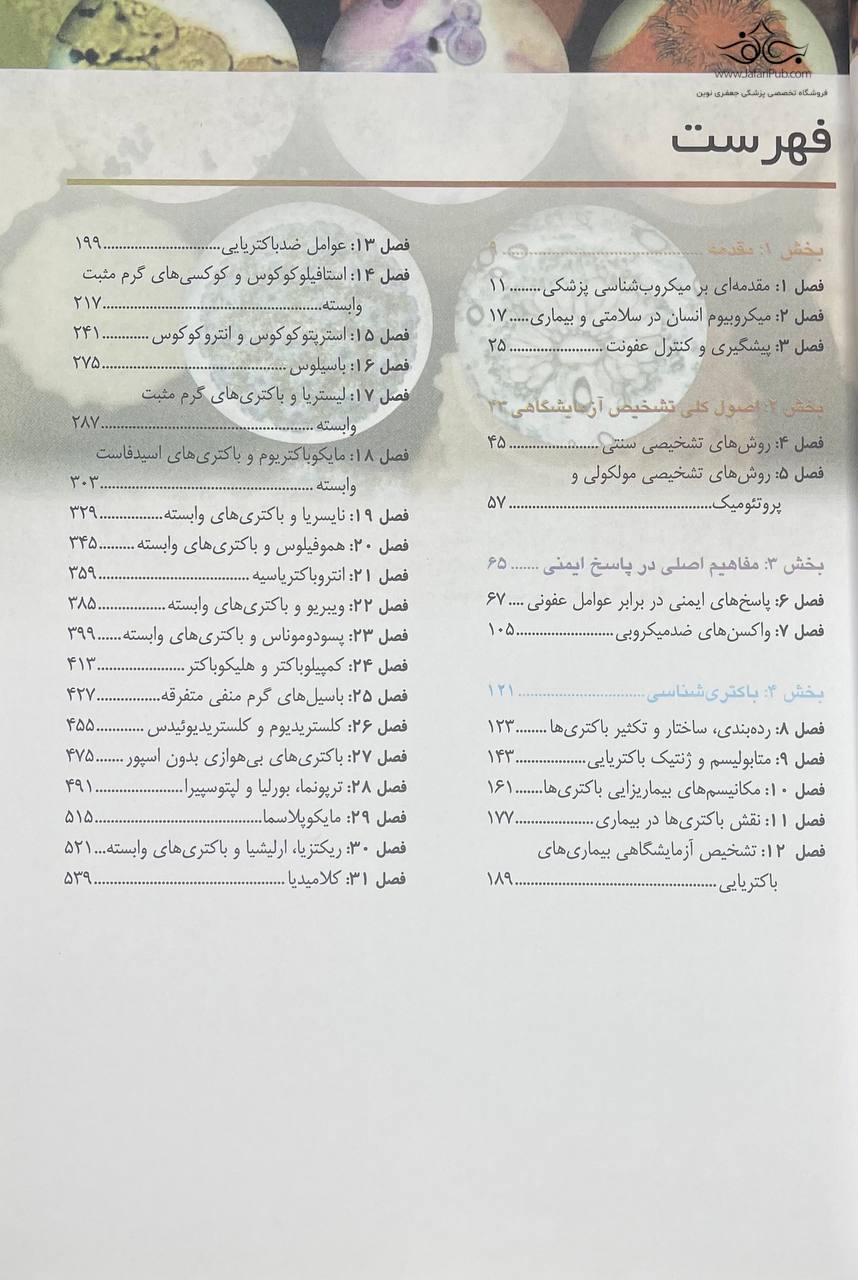 www.JafariPub.com
فروشگاه تخصصی پزشکی جعفری نوین
فهرست
بخش ۱: مقدمه ................................................ ۹
فصل ۱: مقدمه‌ای بر میکروب‌شناسی پزشکی........ ۱۱
فصل ۲: میکروبیوم انسان در سلامتی و بیماری..... ۱۷
فصل ۳: پیشگیری و کنترل عفونت ........................ ۲۵
بخش ۲: اصول کلی تشخیص آزمایشگاهی ۴۳
فصل ۴: روش‌های تشخیصی سنتی....................... ۴۵
فصل ۵: روش‌های تشخیصی مولکولی و
پروتئومیک.................................................... ۵۷
بخش ۳: مفاهیم اصلی در پاسخ ایمنی ....... ۶۵
فصل ۶: پاسخ‌های ایمنی در برابر عوامل عفونی .... ۶۷
فصل ۷: واکسن‌های ضدمیکروبی......................... ۱۰۵
بخش ۴: باکتری‌شناسی................................ ۱۲۱
فصل ۸: رده‌بندی، ساختار و تکثیر باکتری‌ها........ ۱۲۳
فصل ۹: متابولیسم و ژنتیک باکتریایی.................. ۱۴۳
فصل ۱۰: مکانیسم‌های بیماریزایی باکتری‌ها....... ۱۶۱
فصل ۱۱: نقش باکتری‌ها در بیماری .................... ۱۷۷
فصل ۱۲: تشخیص آزمایشگاهی بیماری‌های
باکتریایی.................................................... ۱۸۹
فصل ۱۳: عوامل ضدباکتریایی.............................. ۱۹۹
فصل ۱۴: استافیلوکوکوس و کوکسی‌های گرم مثبت
وابسته........................................................ ۲۱۷
فصل ۱۵: استرپتوکوکوس و انتروکوکوس ............ ۲۴۱
فصل ۱۶: باسیلوس............................................... ۲۷۵
فصل ۱۷: لیستریا و باکتری‌های گرم مثبت
وابسته ....................................................... ۲۸۷
فصل ۱۸: مایکوباکتریوم و باکتری‌های اسیدفاست
وابسته ....................................................... ۳۰۳
فصل ۱۹: نایسریا و باکتری‌های وابسته................ ۳۲۹
فصل ۲۰: هموفیلوس و باکتری‌های وابسته ......... ۳۴۵
فصل ۲۱: انتروباکتریاسیه ....................................... ۳۵۹
فصل ۲۲: ویبریو و باکتری‌های وابسته................. ۳۸۵
فصل ۲۳: پسودوموناس و باکتری‌های وابسته...... ۳۹۹
فصل ۲۴: کمپیلوباکتر و هلیکوباکتر ...................... ۴۱۳
فصل ۲۵: باسیل‌های گرم منفی متفرقه................ ۴۲۷
فصل ۲۶: کلستریدیوم و کلستریدیوئیدس ............ ۴۵۵
فصل ۲۷: باکتری‌های بی‌هوازی بدون اسپور ....... ۴۷۵
فصل ۲۸: ترپونما، بورلیا و لپتوسپیرا...................... ۴۹۱
فصل ۲۹: مایکوپلاسما........................................... ۵۱۵
فصل ۳۰: ریکتزیا، ارلیشیا و باکتری‌های وابسته... ۵۲۱
فصل ۳۱: کلامیدیا ................................................. ۵۳۹